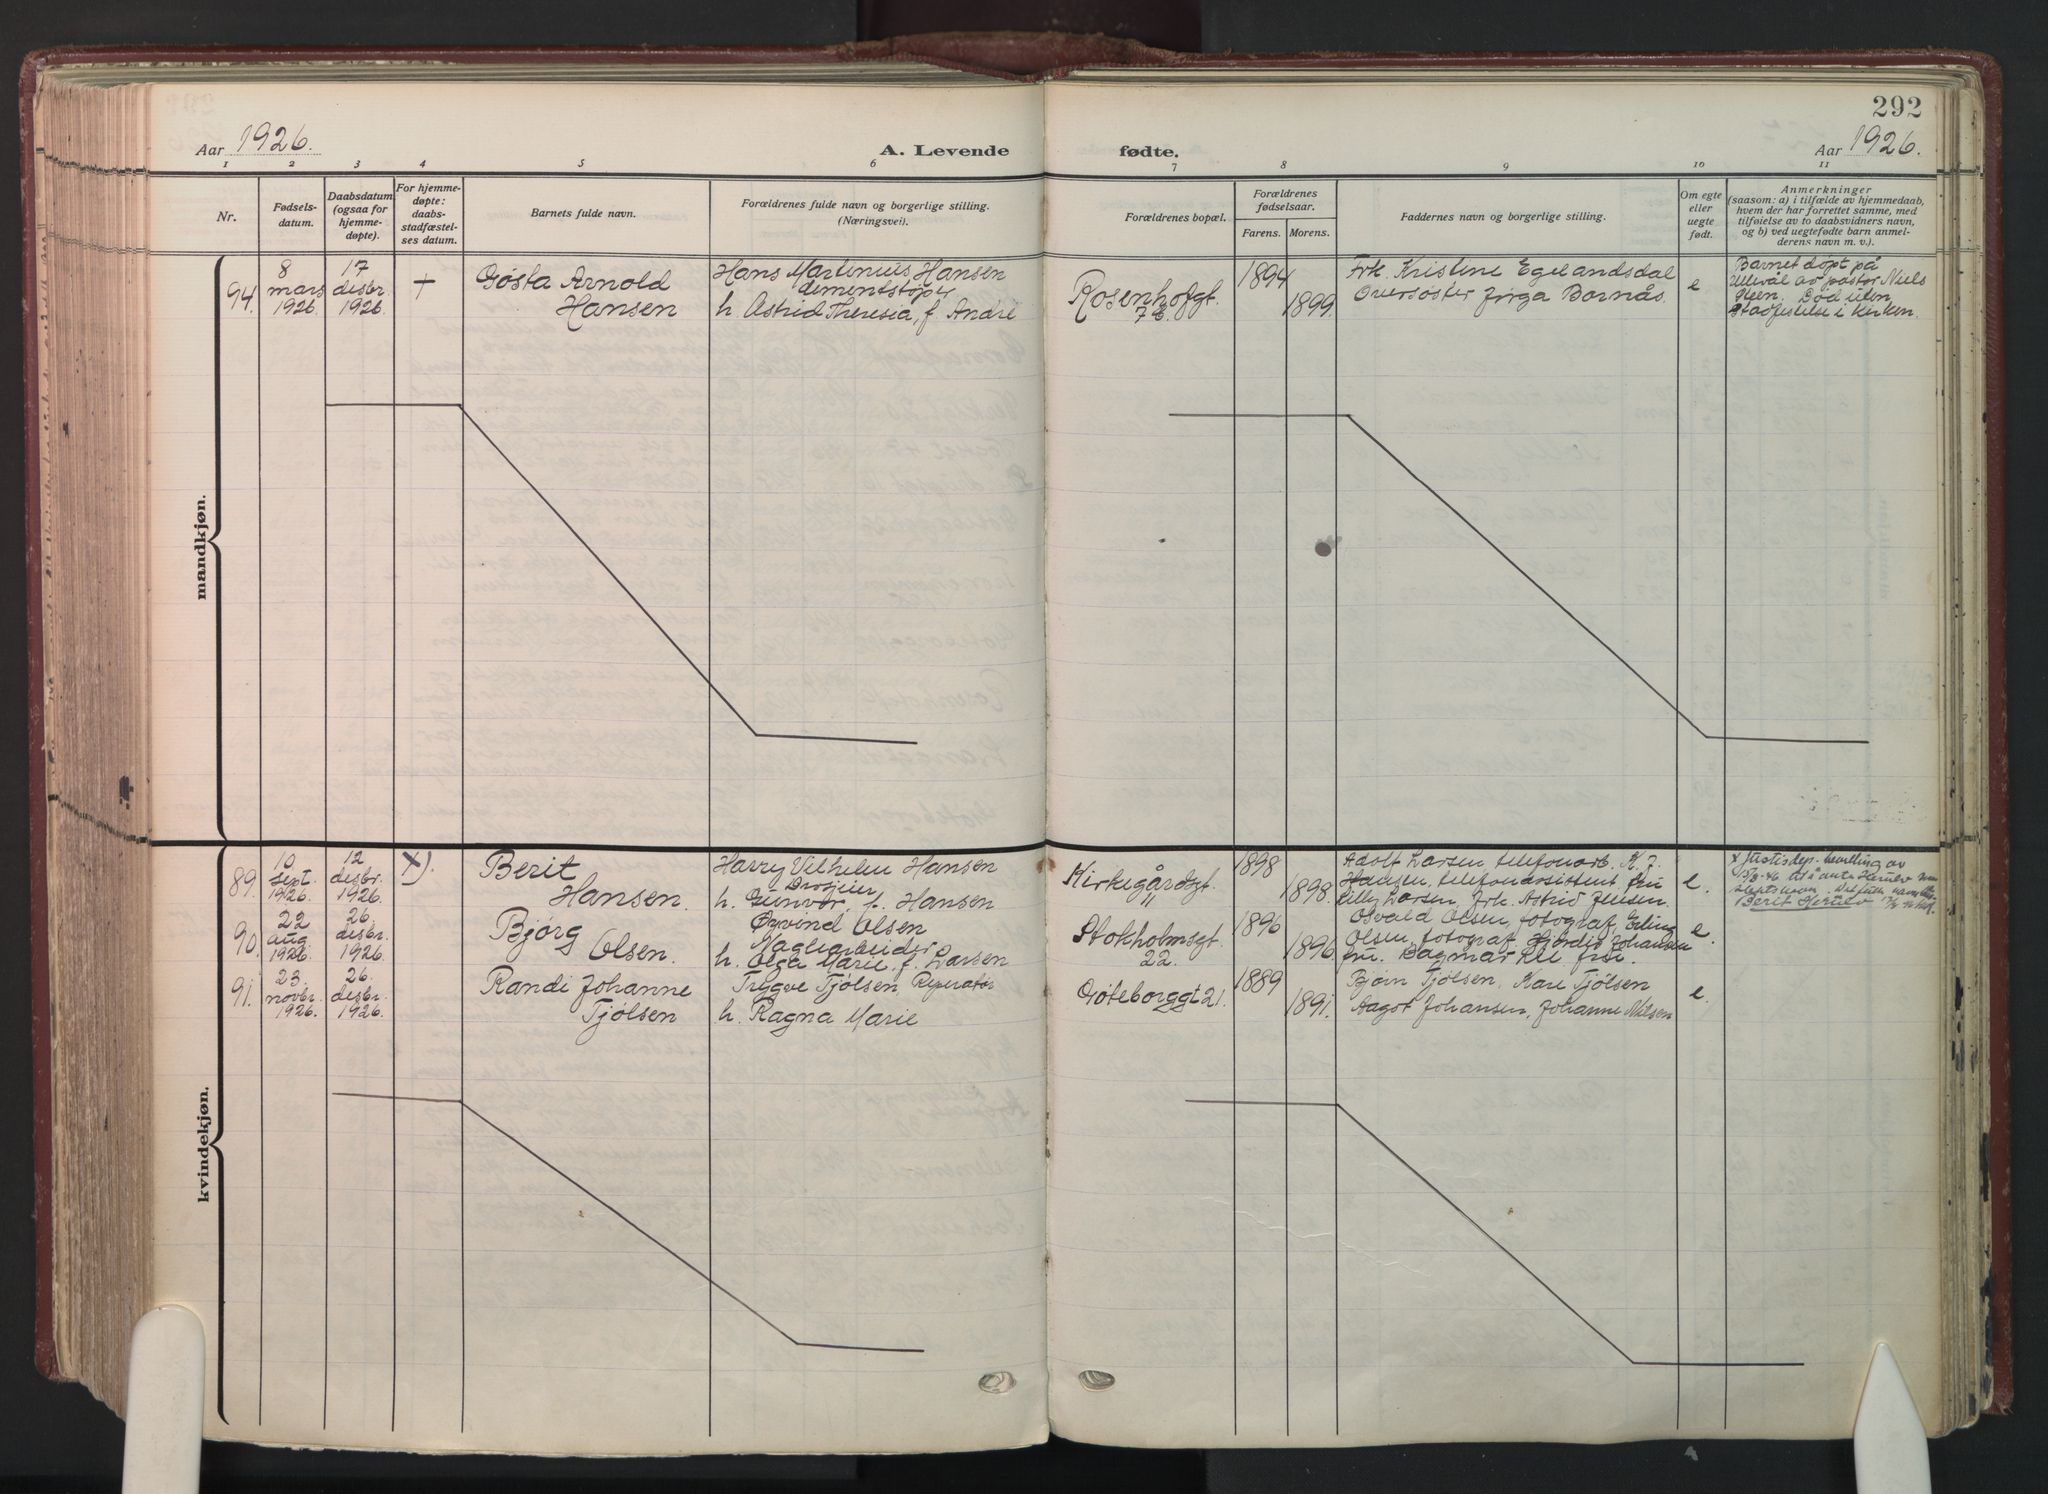 292
Aar 1926.
A. Levende
fødte.
Aar 1926.
1 2 3 4 5 6 7 8 9 10 11
Nr.
Fødsels-
datum.
Daabsdatum
(ogsaa for
hjemme-
døpte).
For hjemme-
døpte:
daabs-
stadfæstel-
ses datum.
Barnets fulde navn.
Forældrenes fulde navn og borgerlige stilling.
(Næringsvei).
Forældrenes bopæl.
Forældrenes
fødselsaar.
Farens. Morens.
Faddernes navn og borgerlige stilling.
Om egte
eller
uegte
født.
Anmerkninger
(saasom: a) i tilfælde av hjemmedaab,
hvem der har forrettet samme, med
tilføielse av to daabsvidners navn,
og b) ved uegtefødte barn anmel-
derens navn m. v.).
mandkjøn.
94.
8
mars
1926.
17
desbr.
1926.
+
Gösta Arnold
Hansen
Hans Martinius Hansen
cementstøper
h Astrid Theresia, f. André
Rosenhofgt.
7 B.
1894
1899.
Frk. Kristine Egelandsdal
Oversøster Jørga Bornås.
e
Barnet døpt på
Ullevål av pastor Niels
Olsen. Død uten
Stadfestelse i kirken.
kvindekjøn.
89.
10
sept.
1926.
12
desbr.
1926.
x).
Berit
Hansen.
Harry Vilhelm Hansen
Drosjeier
h. Gunvor, f. Hansen
Kirkegårdsgt.
11
1898
1898.
Adolf Larsen telefonarb. K. J.
Hansen, telefonassistent, fru
Lilly Larsen, frk. Astrid Jensen.
e.
x Justisdep. bevilling av
til å anta
slektsnavn.
Berit
90.
22
aug.
1926
26.
desbr.
1926.
Bjørg
Olsen.
Øyvind Olsen
Maglearbeider
h. Olga Marie, f. Larsen
Stokholmsgt.
22.
1896
1896.
Osvald Olsen, fotograf, Erling
Olsen, fotograf, Hjørdis Johansen
fru. Dagmar Lie frue.
e.
91.
23.
novbr.
1926.
26
desbr.
1926.
Randi Johanne
Tjölsen
Trygve Tjölsen, Reperatör
h. Ragna Marie
Göteborggt 21.
1889
1891.
Bjørn Tjölsen, Kare Tjölsen
Aagot Johansen, Johanne Nilsen
e.